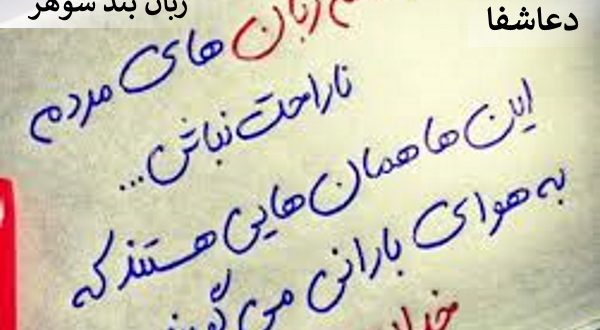 دعاشفا
زبان بند شوهر
زبان های مردم
ناراحت نباش...
این ها همان هایی هستند که
به هوای بارانی می